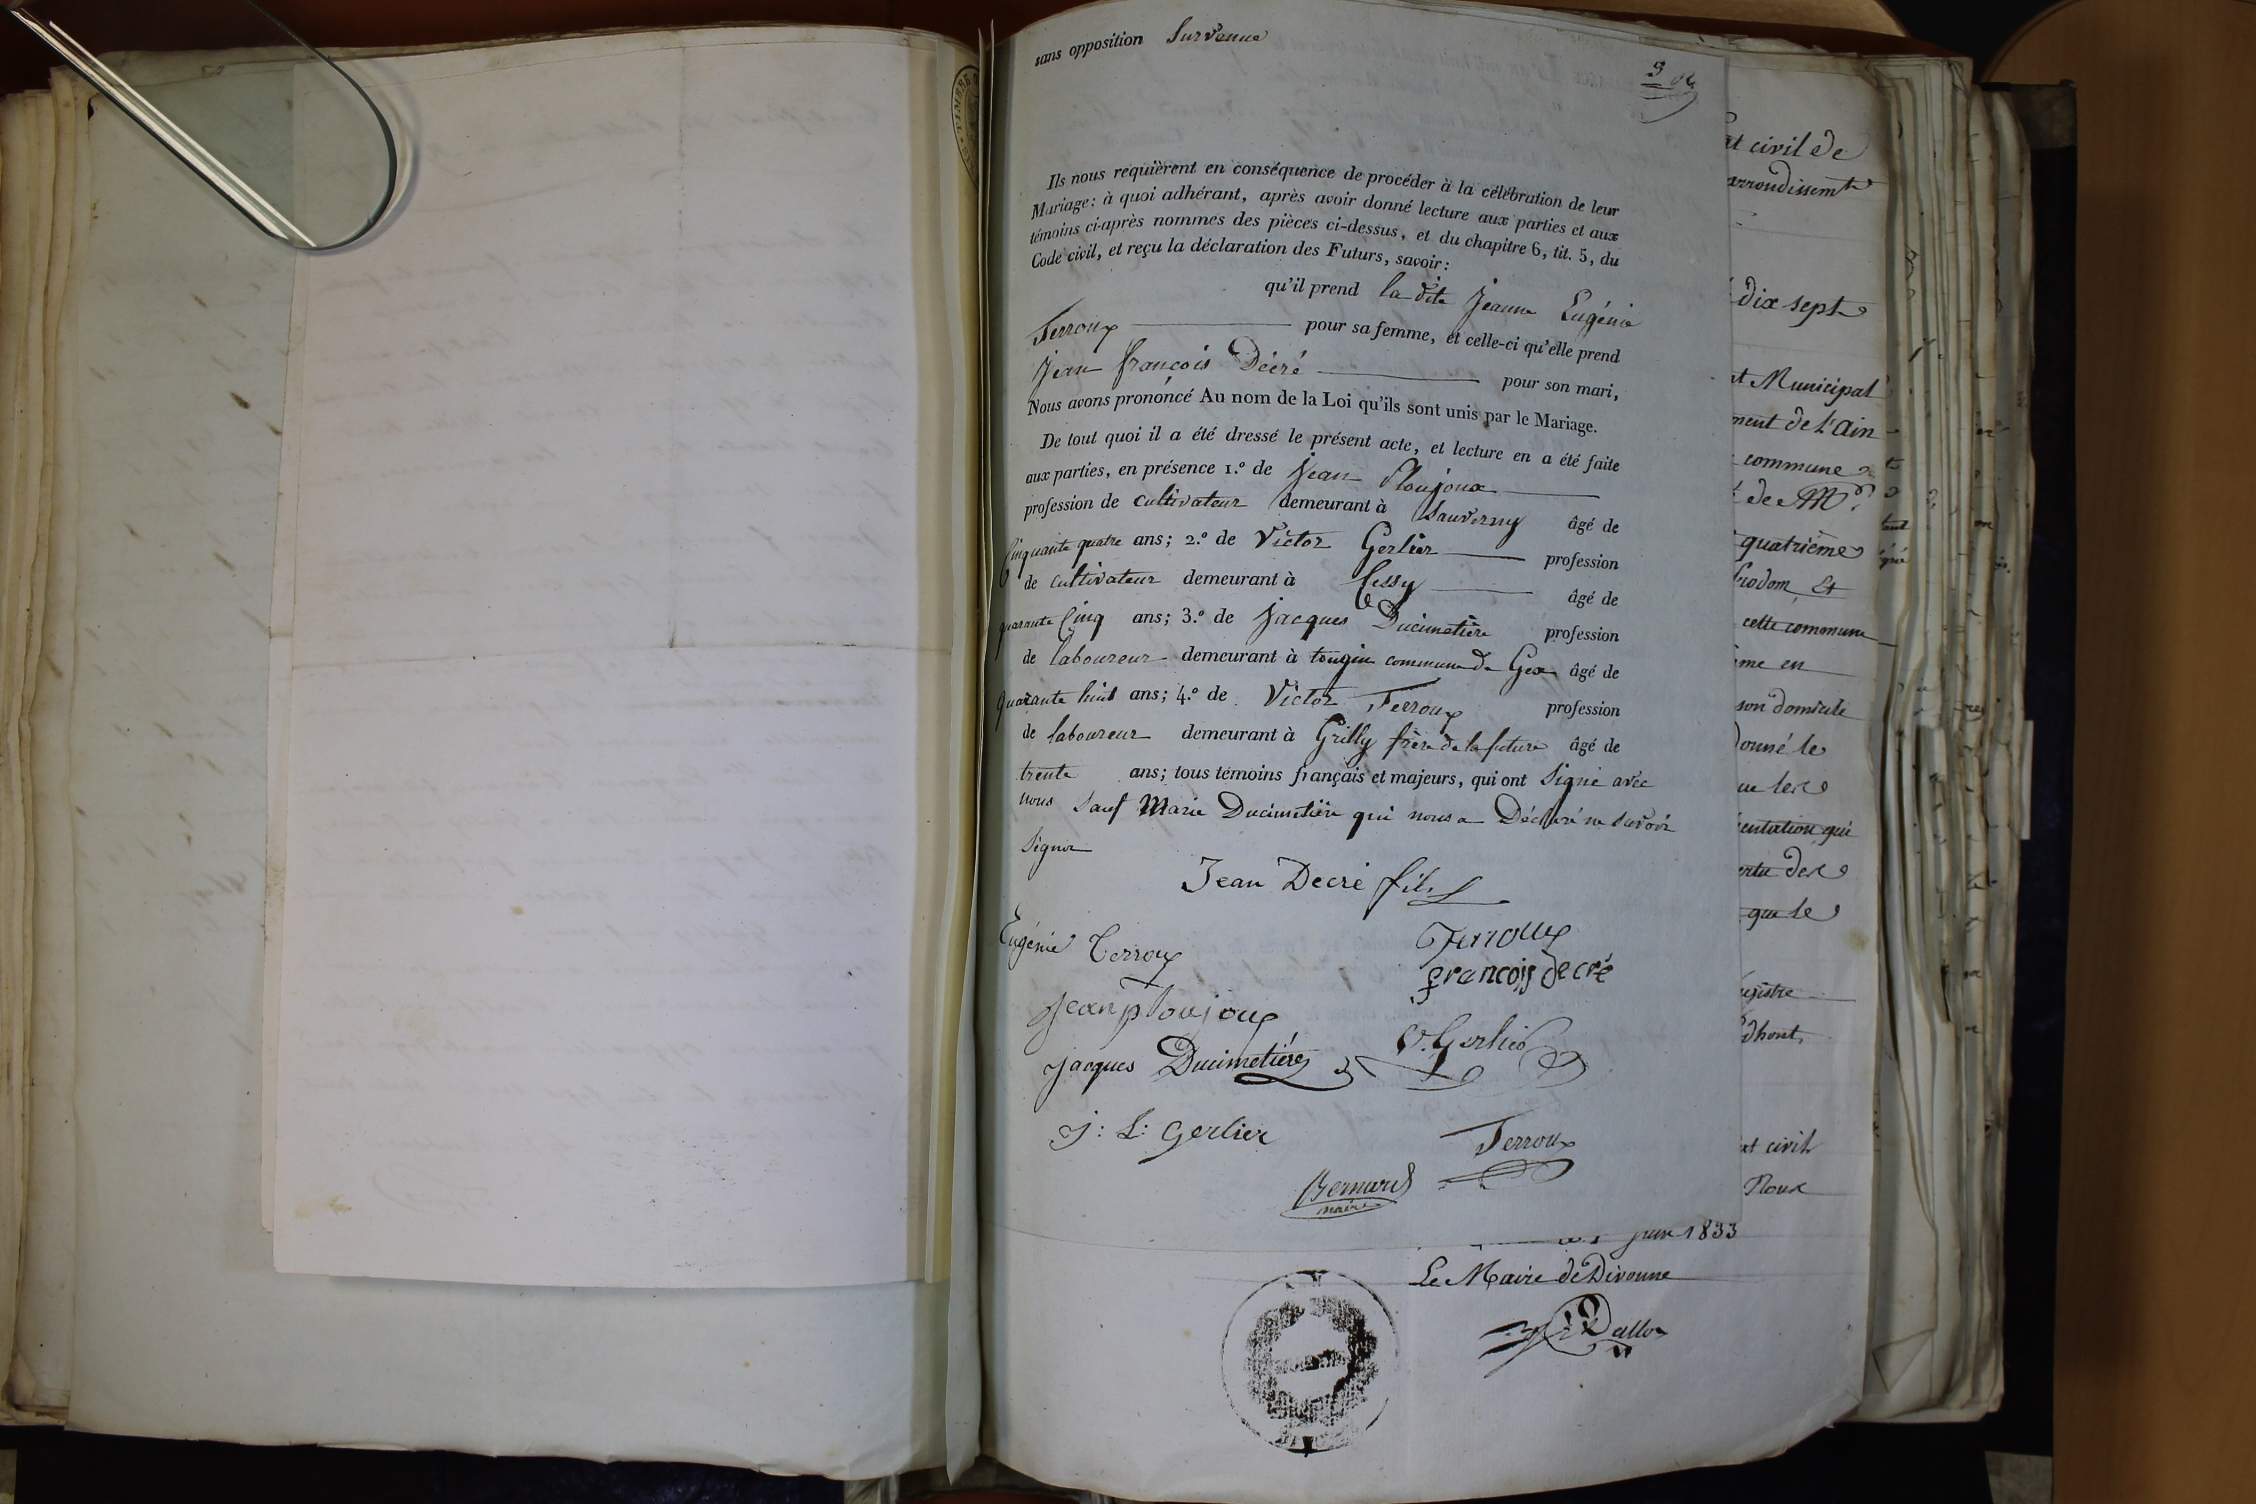 sans opposition Survenue
Ils nous requièrent en conséquence de procéder à la célébration de leur
Mariage: à quoi adhérant, après avoir donné lecture aux parties et aux
témoins ci-après nommés des pièces ci-dessus, et du chapitre 6, tit. 5, du
Code civil, et reçu la déclaration des Futurs, savoir:
qu'il prend la dite Jeanne Eugénie
Terroux pour sa femme, et celle-ci qu'elle prend
Jean françois Décré pour son mari,
Nous avons prononcé Au nom de la Loi qu'ils sont unis par le Mariage.
De tout quoi il a été dressé le présent acte, et lecture en a été faite
aux parties, en présence 1.º de Jean Ploujoux
profession de cultivateur demeurant à Sauverny âgé de
Cinquante quatre ans; 2.º de Victor Gerlier profession
de cultivateur demeurant à Cessy âgé de
quarante Cinq ans; 3.º de Jacques Ducimetière profession
de laboureur demeurant à tougin commune de Gex âgé de
quarante huit ans; 4.º de Victor Terroux profession
de laboureur demeurant à Grilly frère de la future âgé de
trente ans; tous témoins français et majeurs, qui ont Signé avec
nous Sauf Marie Ducimetière qui nous a Déclaré ne savoir
Signer
Jean Decré fils
Eugénie Terroux
Terroux
françois decré
Jean ploujoux
V. Gerlier
Jacques Ducimetière
J: L: Gerlier
Terroux
Bernard
maire
juin 1833
Le Maire de Divonne
at civil de
arrondissemt
dix sept
Municipal
ment de l'ain
commune
de Mr
quatrième
et
cette commune
me en
son domicile
donné le
que
civil
Roux